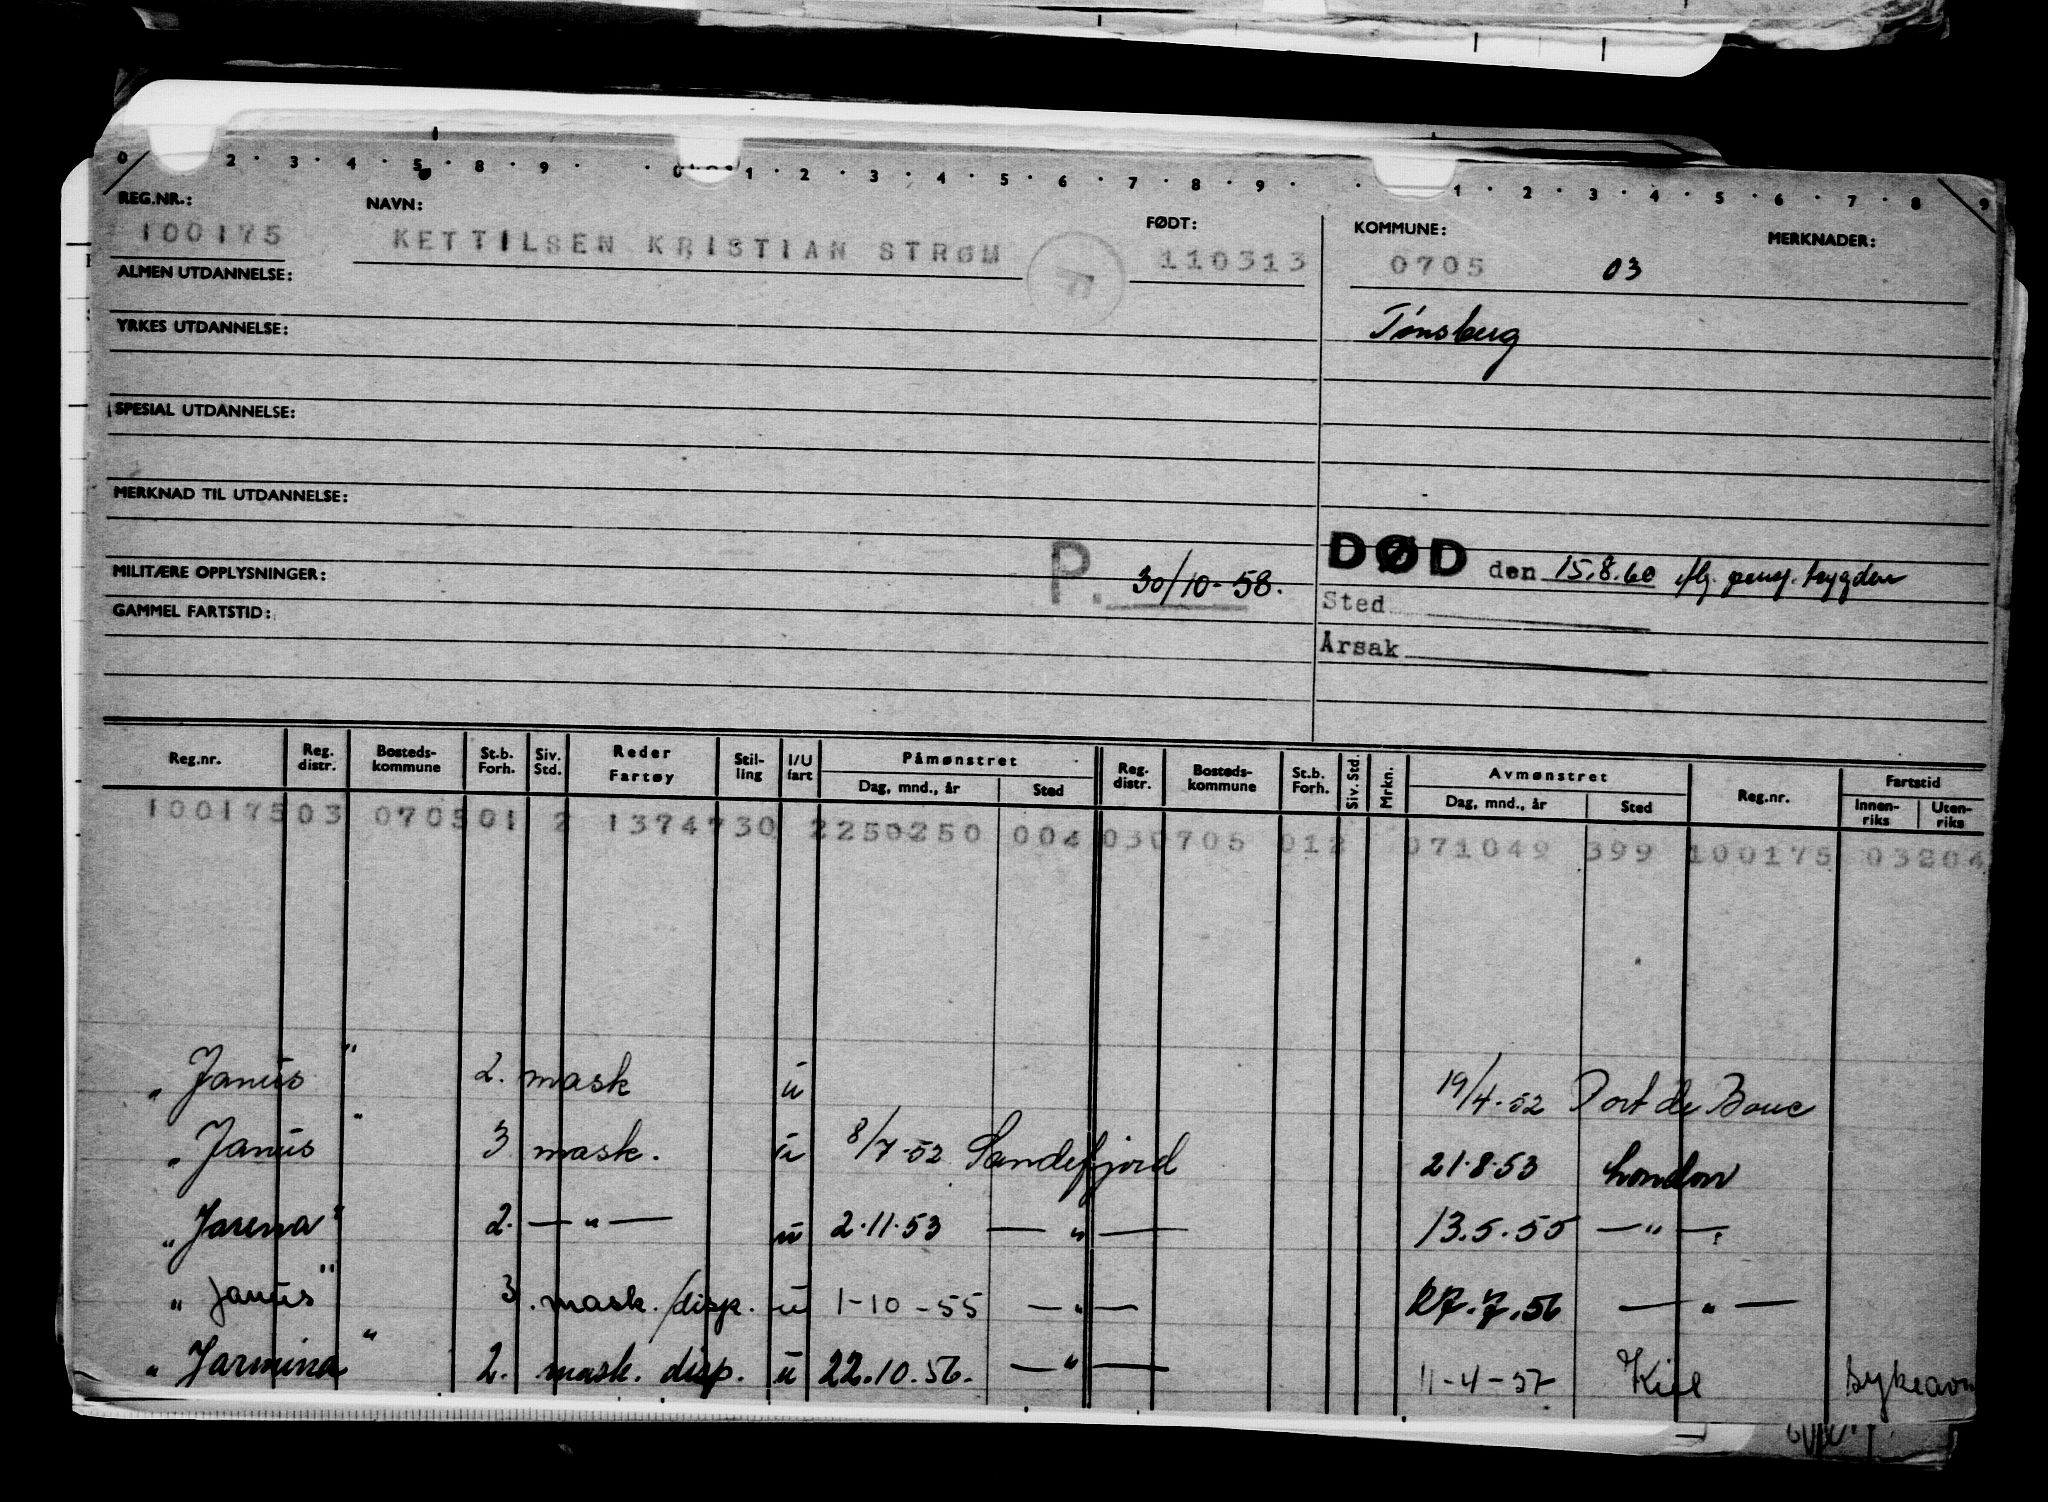 0 2 . 3 . 4 . 5 . 8 . 9 . . 0 1 . 2 . 3 . 4 . 5 . 6 . 7 . 8 . 9 . . 1 . 2 . 3 . 4 . 5 . 6 . 7 . 8 9
REG.NR.: NAVN: FØDT: KOMMUNE: MERKNADER:
100175 KETTILSEN KRISTIAN STRØM 110313 0705 03
ALMEN UTDANNELSE:
YRKES UTDANNELSE: Tønsberg
SPESIAL UTDANNELSE:
MERKNAD TIL UTDANNELSE:
MILITÆRE OPPLYSNINGER: P. 30/10-58. DØD den 15.8.60 pensj. trygden
GAMMEL FARTSTID: Sted
Årsak
Reg.nr. Reg. distr. Bosteds-kommune St.b. Forh. Siv. Std. Reder Fartøy Stil-ling I/U fart Påmønstret Dag, mnd., år Sted Reg. distr. Bosteds-kommune St.b. Forh. Siv. Std. Mrkn. Avmønstret Dag, mnd., år Sted Reg.nr. Fartstid Innen-riks Uten-riks
100175 03 0705 01 2 1374730 2250250 004 030705 012 071049 399 100175 03204
"Janus" 2. mask u 19/4-52 Port de Bouc
"Janus" 3 mask. u 8/7-52 Sandefjord 21.8.53 London
"Jarena" 2. — " — u 2.11.53 — " — 13.5.55 — " —
"Janus" 3. mask./disp. u 1-10-55 — " — 27.7.56 — " —
"Jarmina" 2. mask. disp. u 22.10.56. — " — 11-4-57 Kiel sykeavm